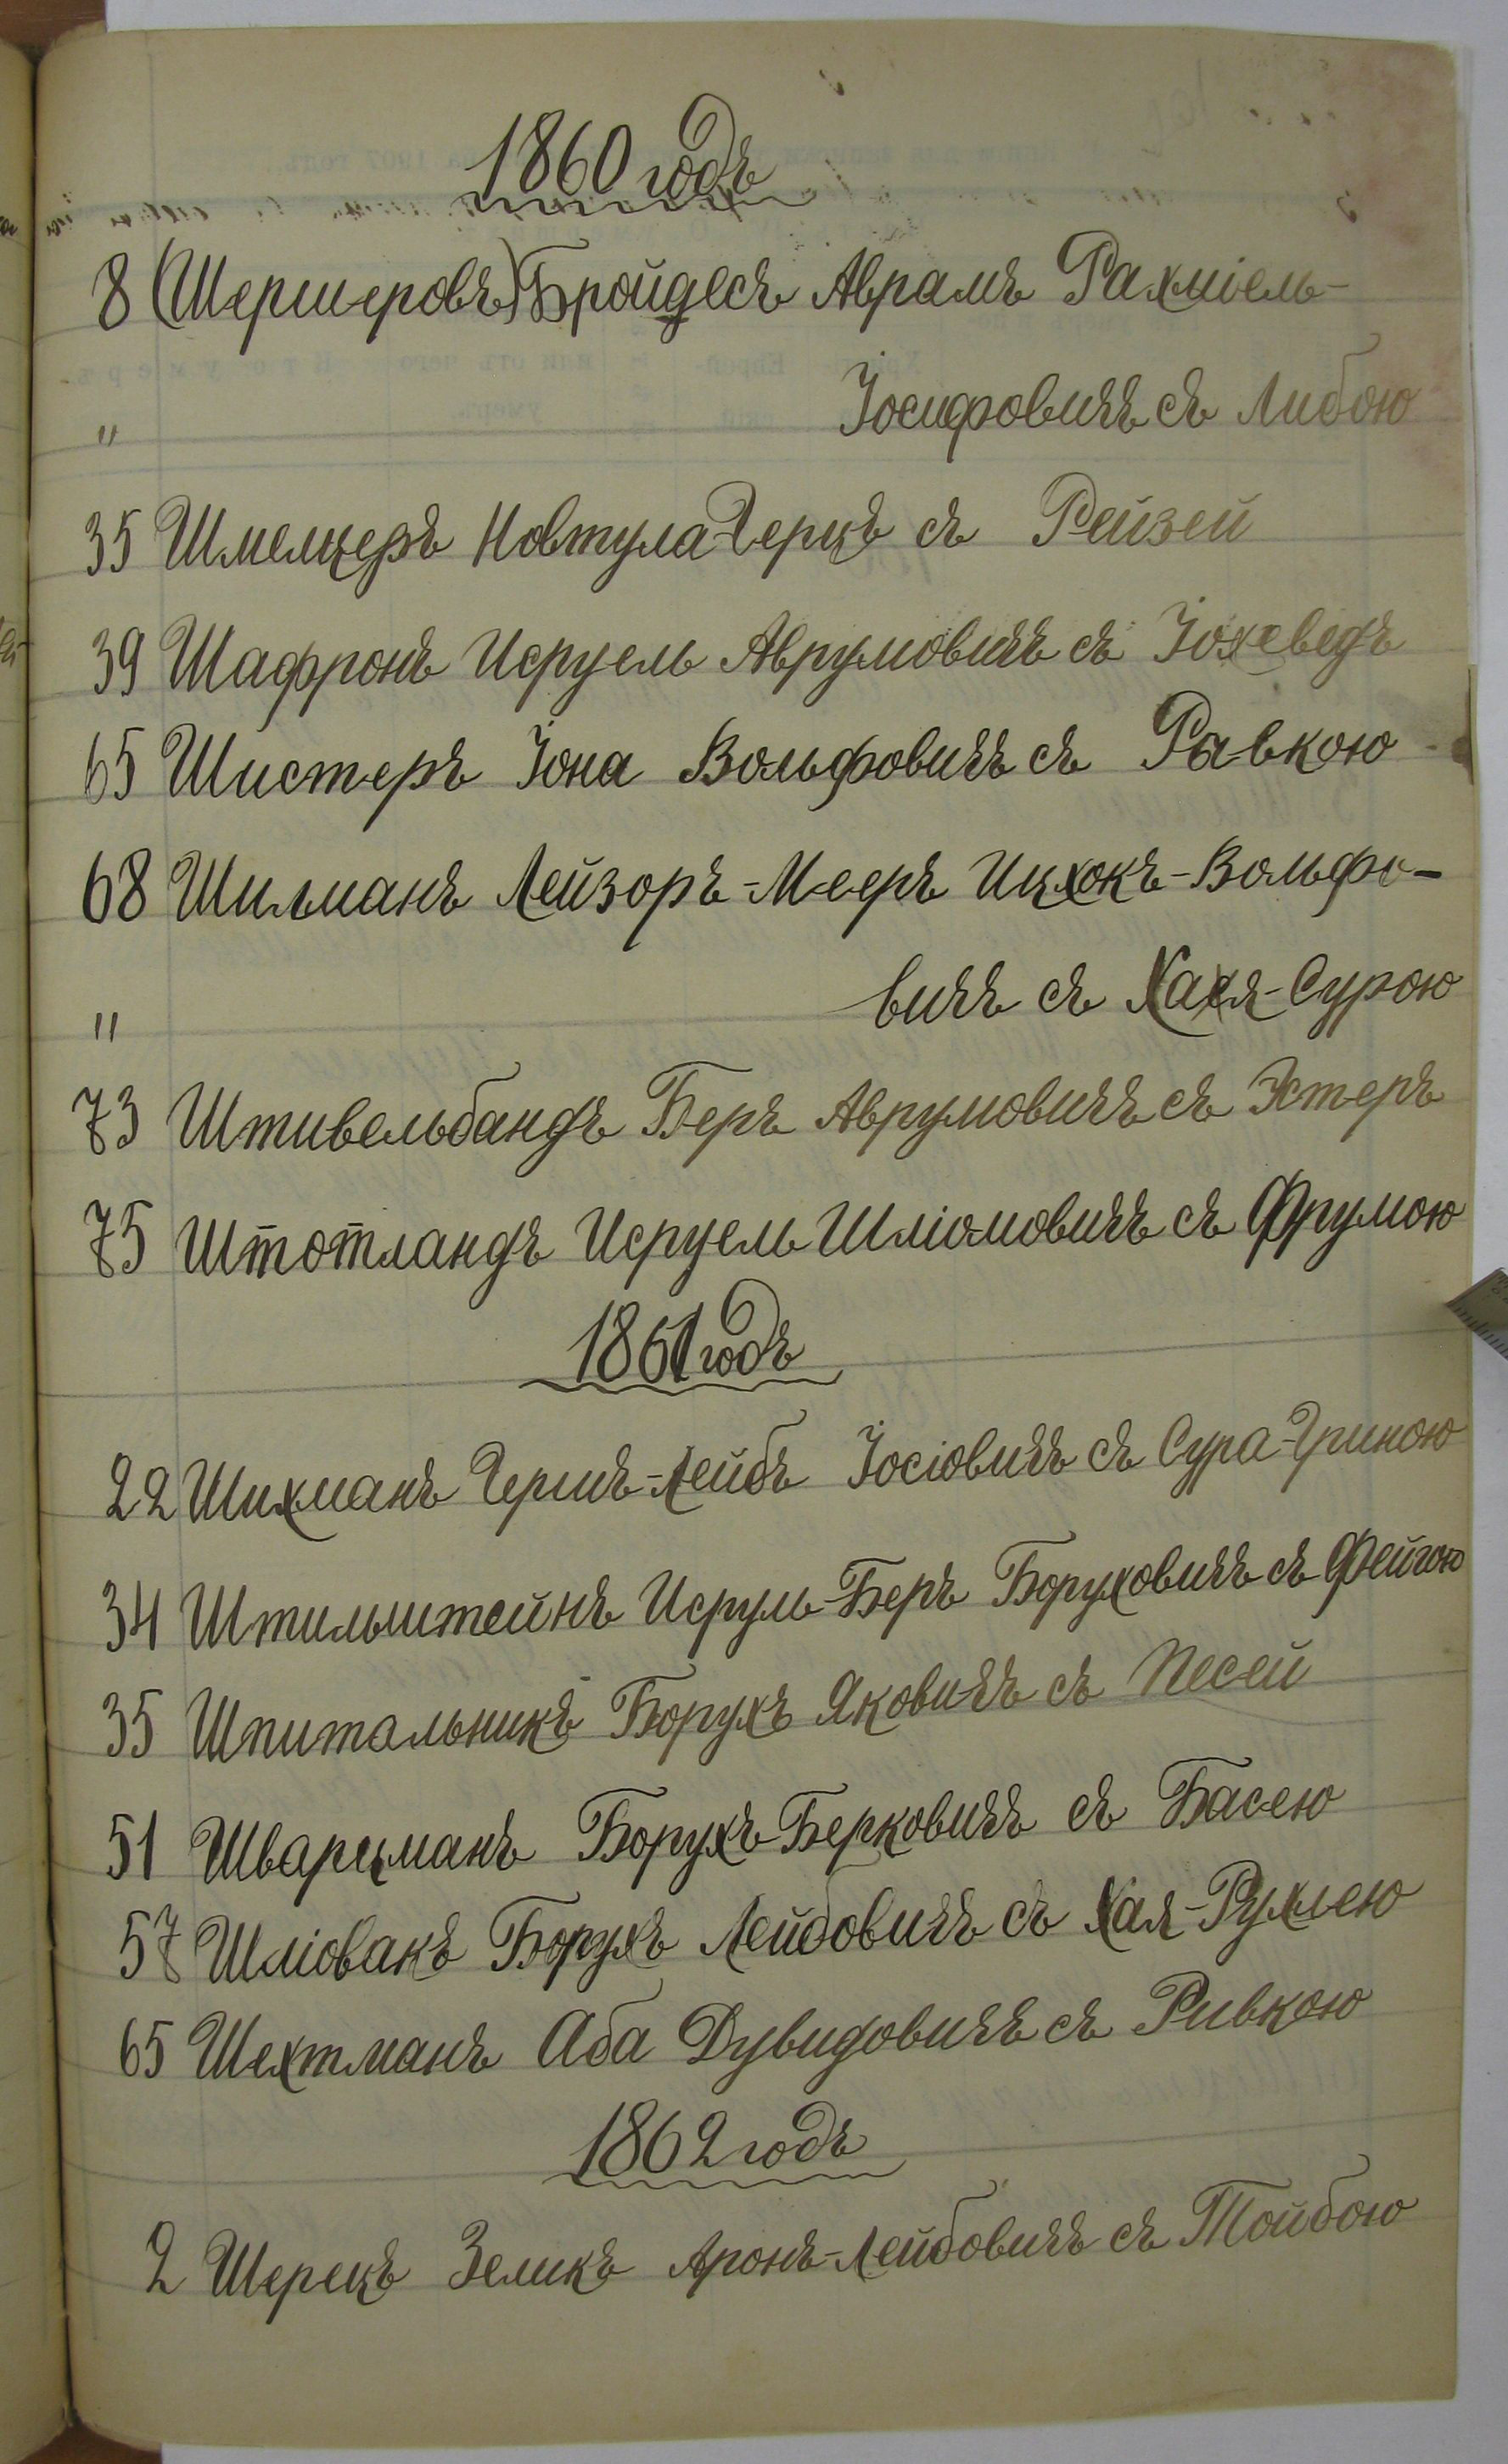 1860 годъ
8 (Шершеровъ) Бройдесъ Аврамъ Рахміель-
" Іосифовичъ съ Либою
35 Шмелцеръ Новтула-Герцъ съ Рейзей
39 Шафронъ Исруель Аврумовичъ съ Іохеведъ
65 Шистеръ Іона Вольфовичъ съ Равкою
68 Шильманъ Лейзоръ-Мееръ Ицхокъ-Вольфо-
" вичъ съ Хася-Сурою
73 Штивельбандъ Беръ Аврумовичъ съ Эстеръ
75 Штотландъ Исруель Шліомовичъ съ Фрумою
1861 годъ
22 Шихманъ Гершъ-Лейбъ Іосіовичъ съ Сура-Гриною
34 Штильштейнъ Исруль-Беръ Боруховичъ съ Фейгою
35 Шпитальникъ Борухъ Яковичъ съ Песей
51 Шварцманъ Борухъ-Берковичъ съ Басею
57 Шліовакъ Борухъ Лейбовичъ съ Хая-Рухлею
65 Шехтманъ Аба Дувидовичъ съ Ривкою
1862 годъ
2 Шерецъ Зеликъ Аронъ-Лейбовичъ съ Тойбою